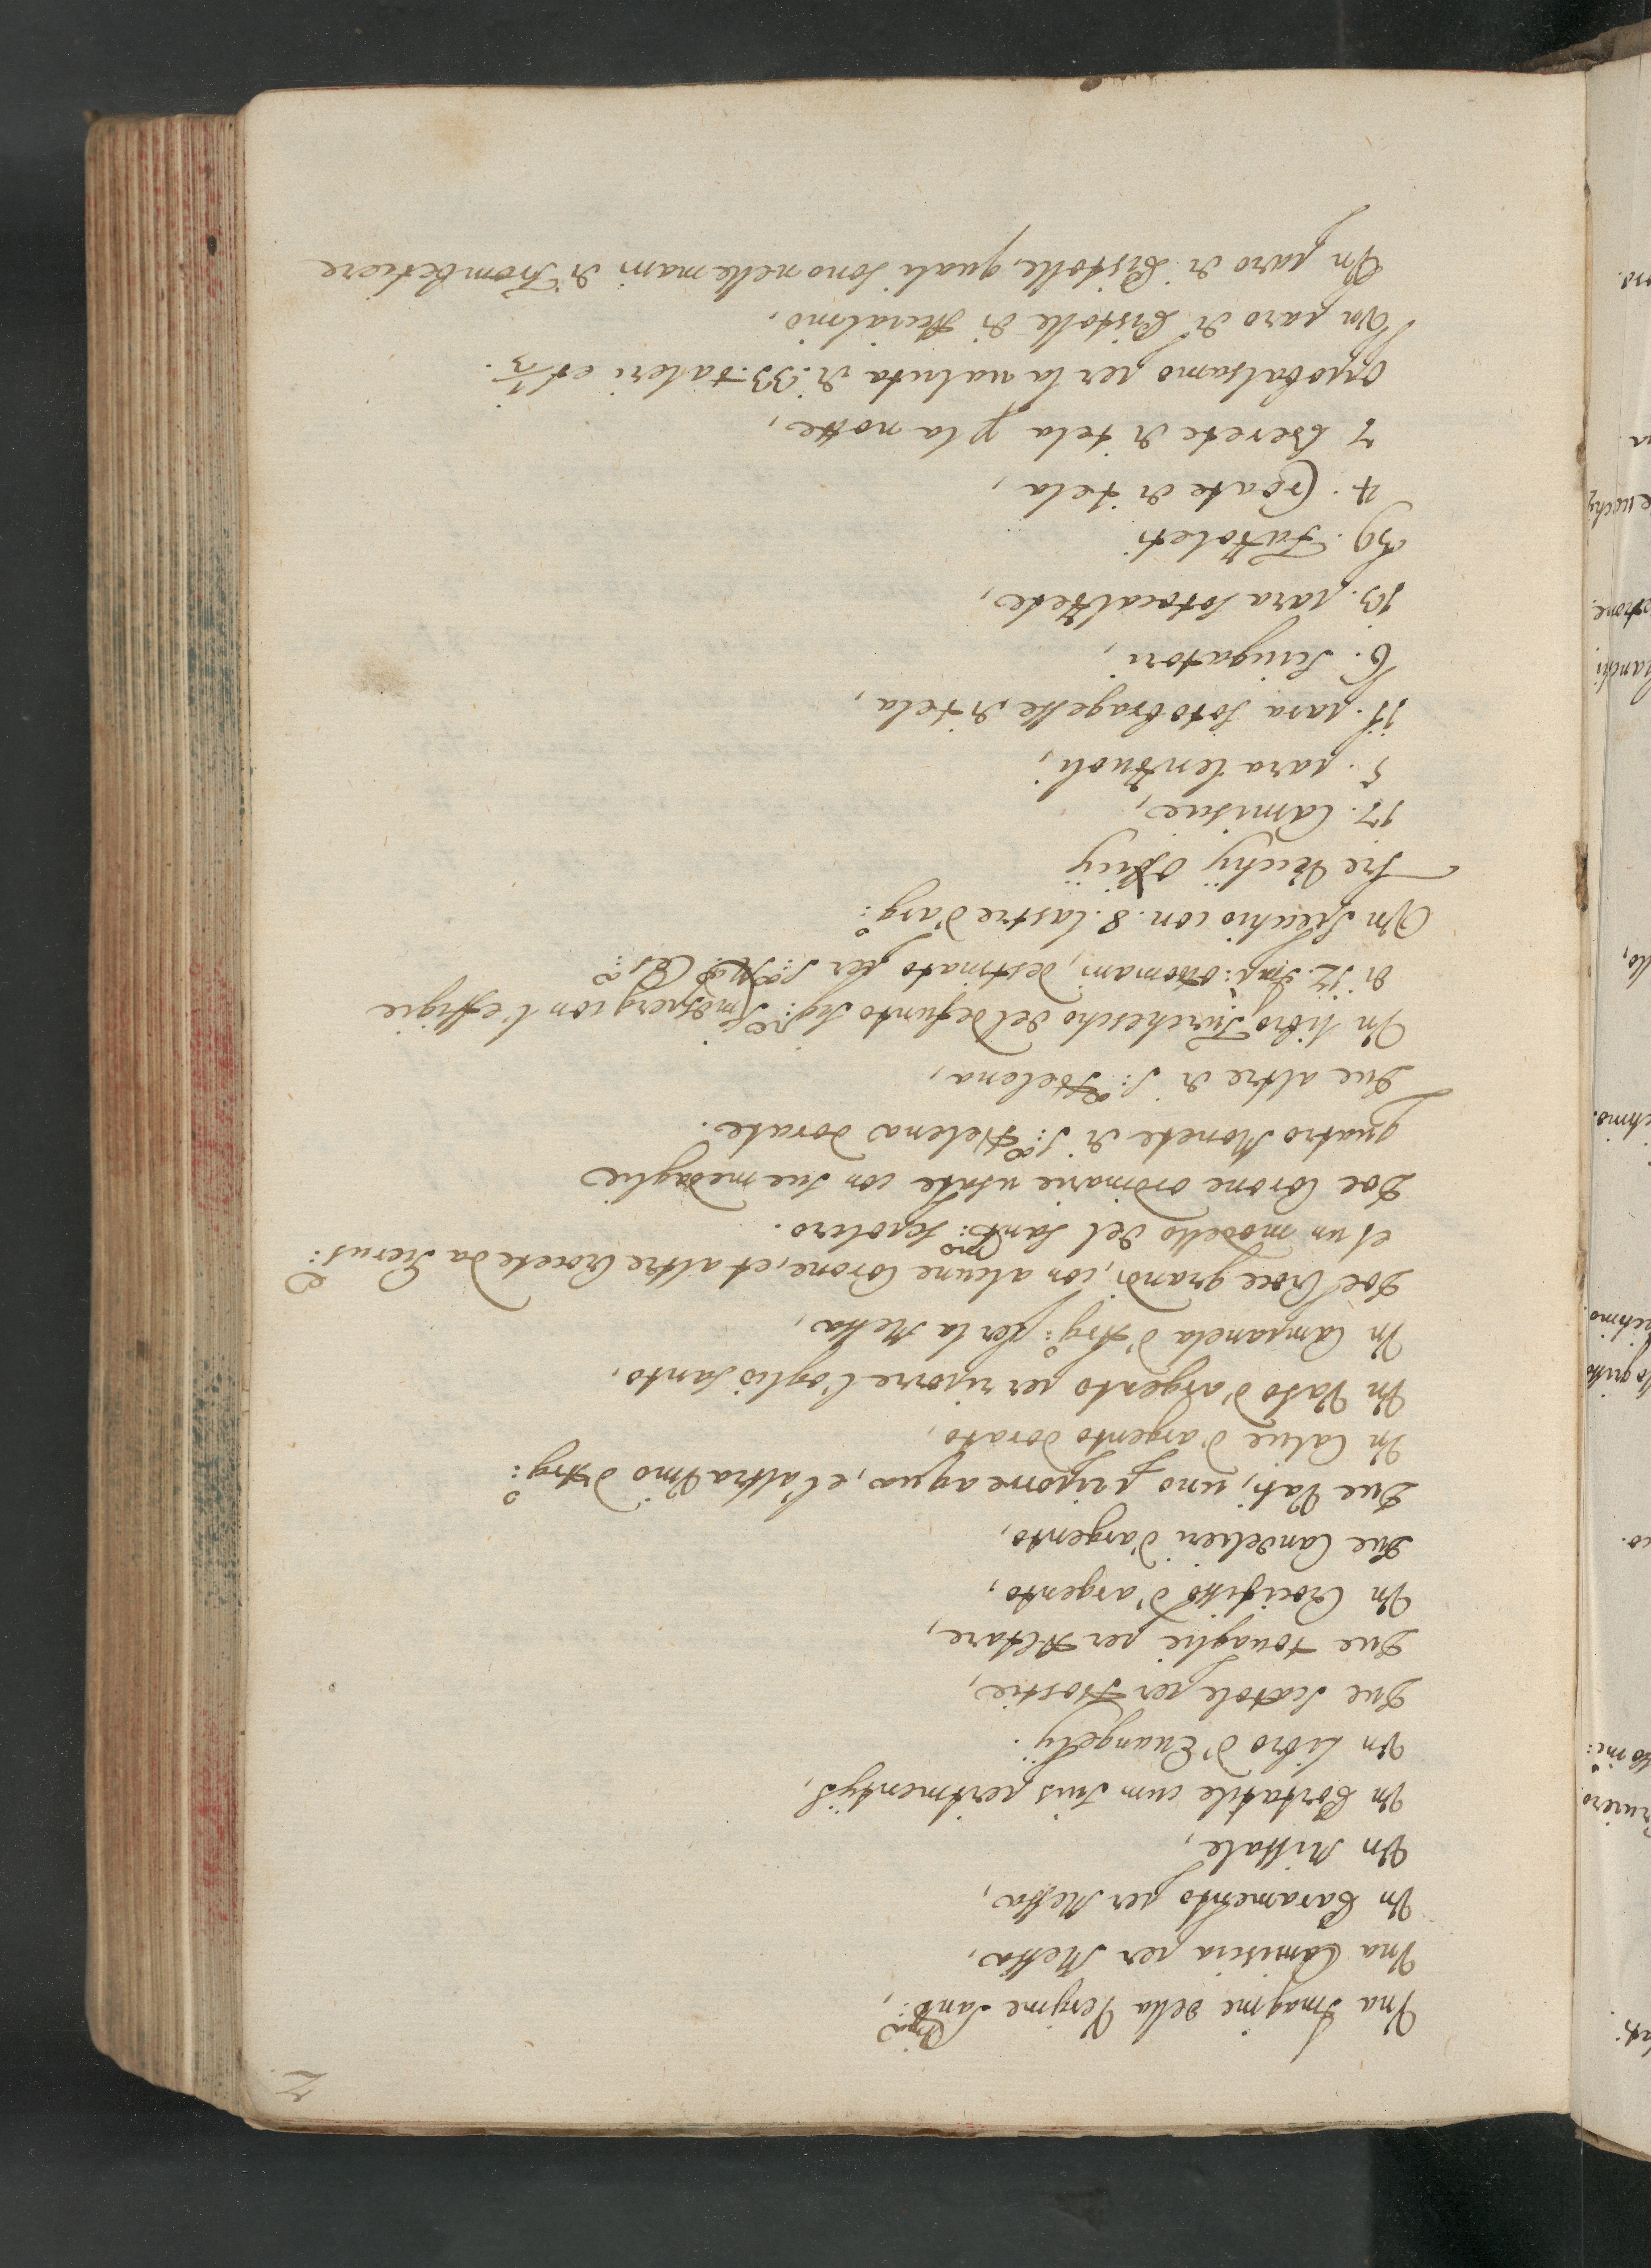 2
Vna Imagine della Vergine Sant:ma,
Vna Camiscia per Messa,
Vn Paramento per Messa,
Vn Missale,
Vn Portatile cum suis pertinentijs,
Vn Libro d'Euangelij.
Due scatole per Hostie,
Due touaglie per Altare,
Vn Crocifisso d'argento,
Due Candelieri d'argento,
Due Vasi, uno p riporre aqua, et l'altra Vino d'Arg:o
Vn Calice d'argento dorato,
Vn Vaso d'argento per riporre l'oglio santo,
Vn Campanela d'Arg:o per la Messa,
Doe Croce grandi, con alcune Corone, et altre Crocete da Hierus:e
et un modello del Sant:mo Sepolcro.
Doe Corone ordinarie usate con sue medaglie
Quatro Monete di S:a Helena dorate.
Due altre di S:a Helena,
Vn libro Turchescho del defunto Sig:re con l'effigie
di 12. Imp:i ottomani, destinato per S:a M:a Ces:a
Vn Specchio con .8. lastre d'arg:o
Tre Vechij Officij
17. Camiscie,
5. para lenzuoli,
11. para sotobragesse di tela,
6. Sciugatori,
13. para sotocalzete,
39. Fazoleti
4. Croate di tela,
7 berete di tela p la notte,
Opobalsamo per la ualuta di .33. taleri et 1/2.
Vn paro di Pistolle di
Vn paro di Pistolle, quali sono nelle mani di Trombetiere